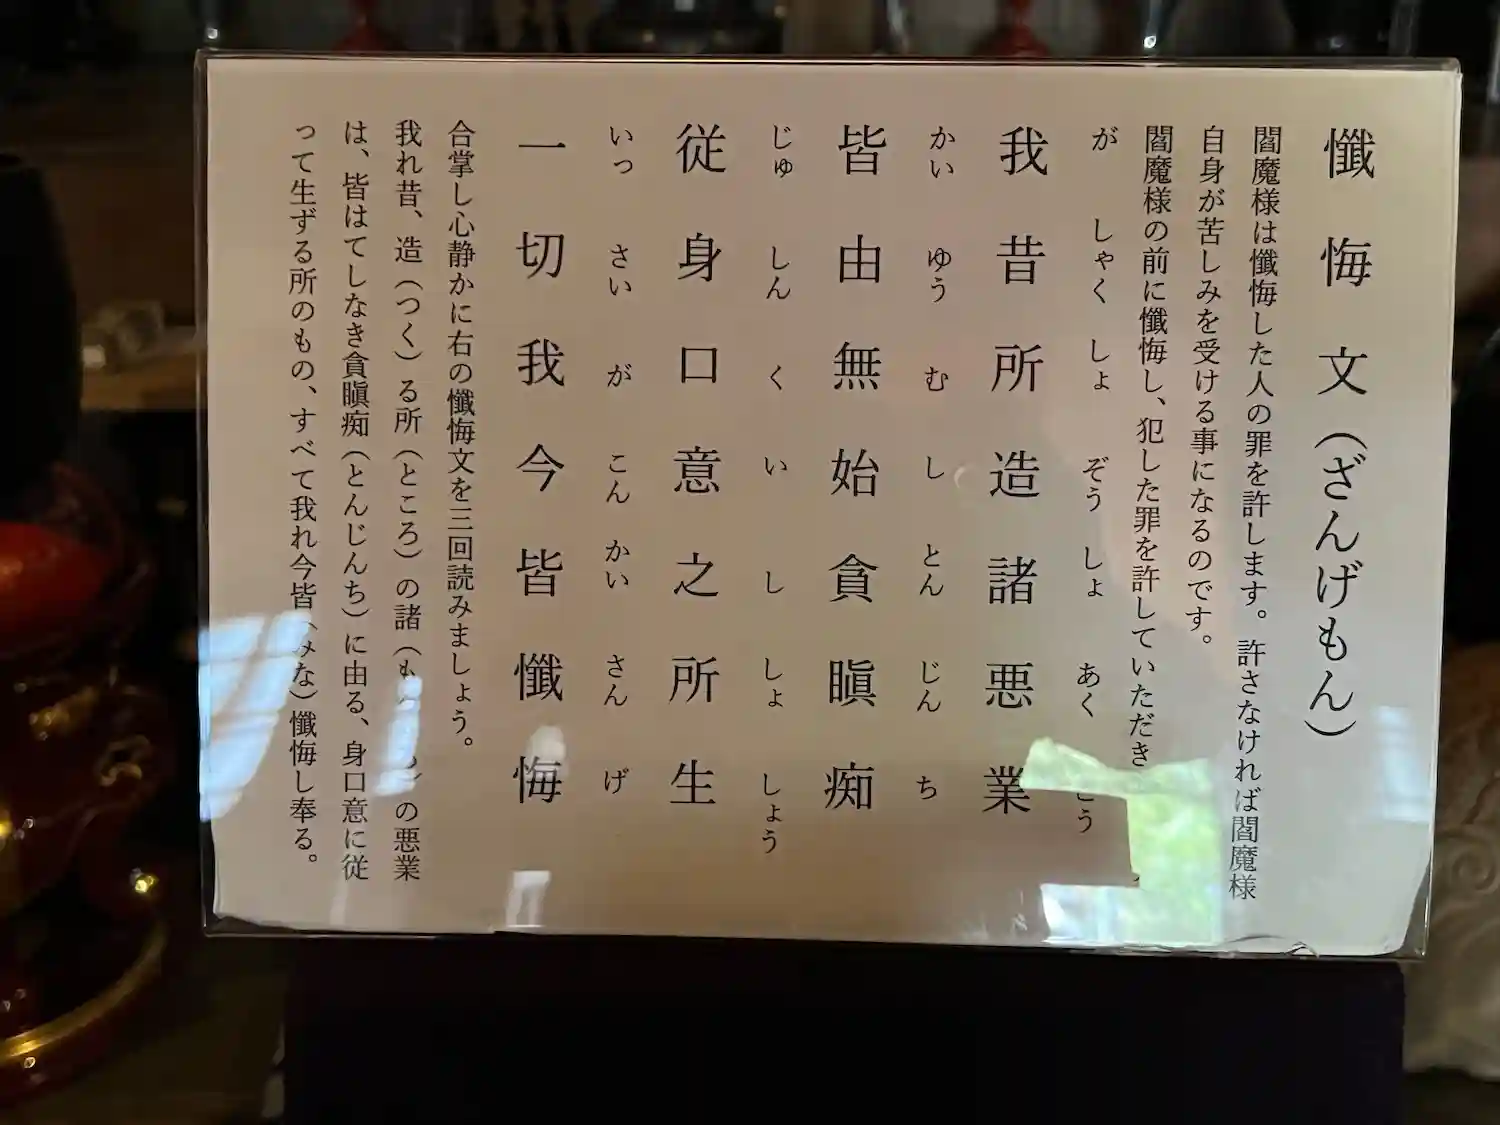 懺悔文(ざんげもん)
閻魔様は懺悔した人の罪を許します。許さなければ閻魔様
自身が苦しみを受ける事になるのです。
閻魔様の前に懺悔し、犯した罪を許していただき
が しゃく しょ ぞう しょ あく ごう
我昔所造諸悪業
かい ゆう む し とん じん ち
皆由無始貪瞋痴
じゅ しん く い し しょ しょう
従身口意之所生
いっ さい が こん かい さん げ
一切我今皆懺悔
合掌し心静かに右の懺悔文を三回読みましょう。
我れ昔、造(つく)る所(ところ)の諸(も)の悪業
は、皆はてしなき貪瞋痴(とんじんち)に由る、身口意に従
って生ずる所のもの、すべて我れ今皆(みな)懺悔し奉る。